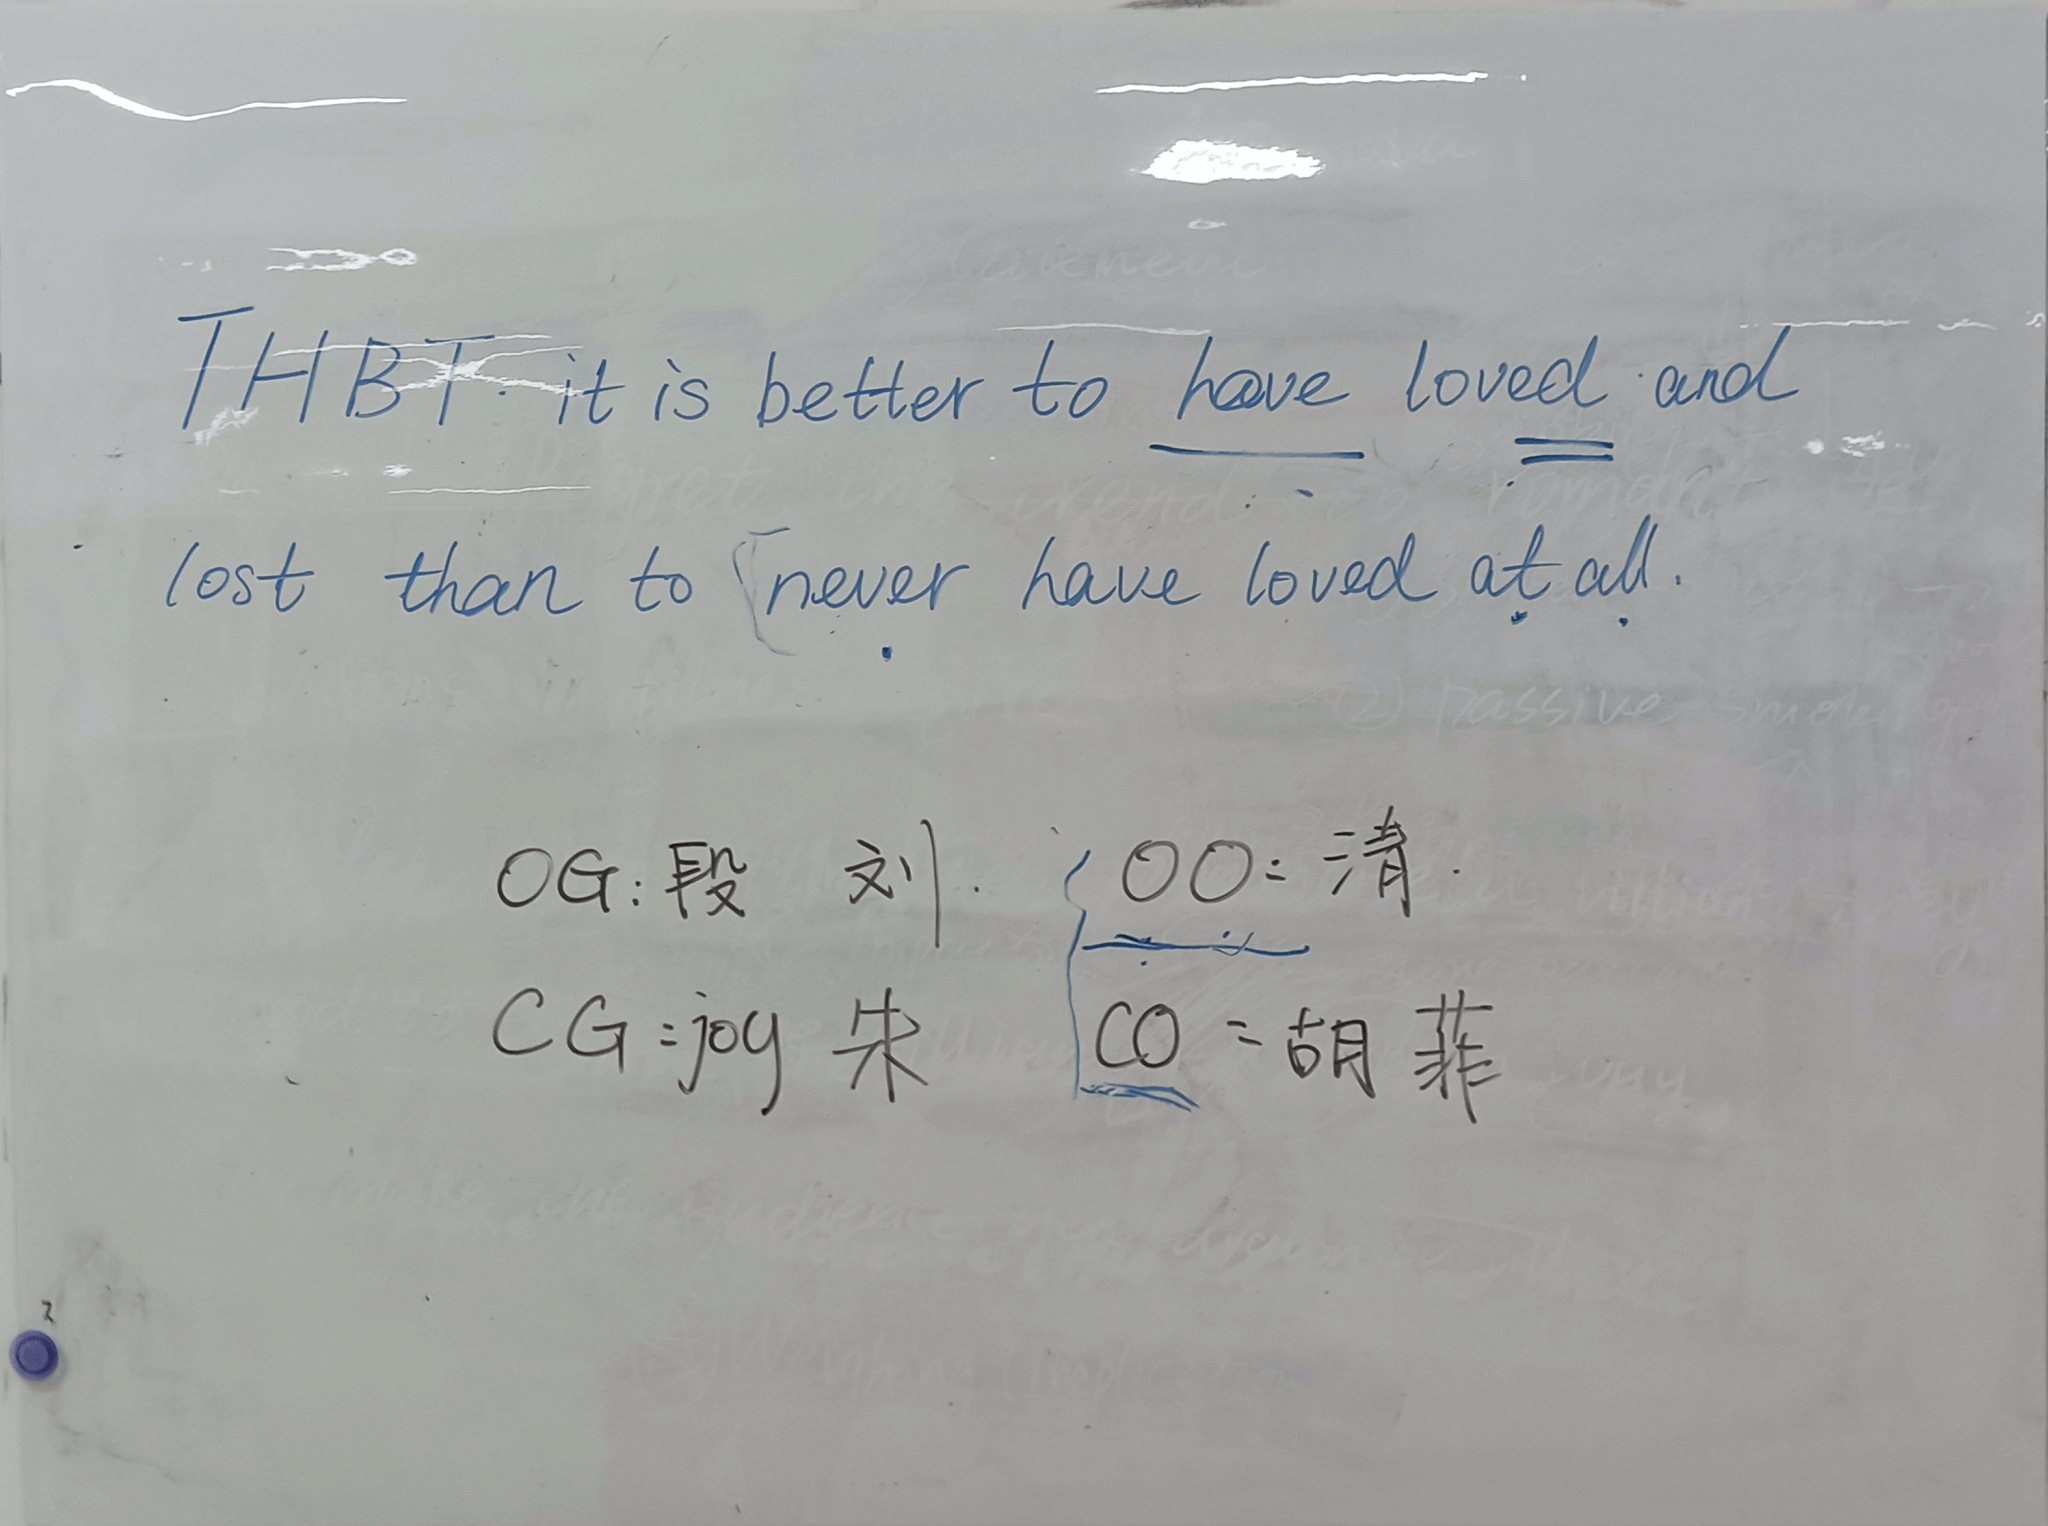 THBT it is better to have loved and
lost than to never have loved at all.
OG: 段 刘. OO: 清.
CG: joy 朱 CO: 胡 菲